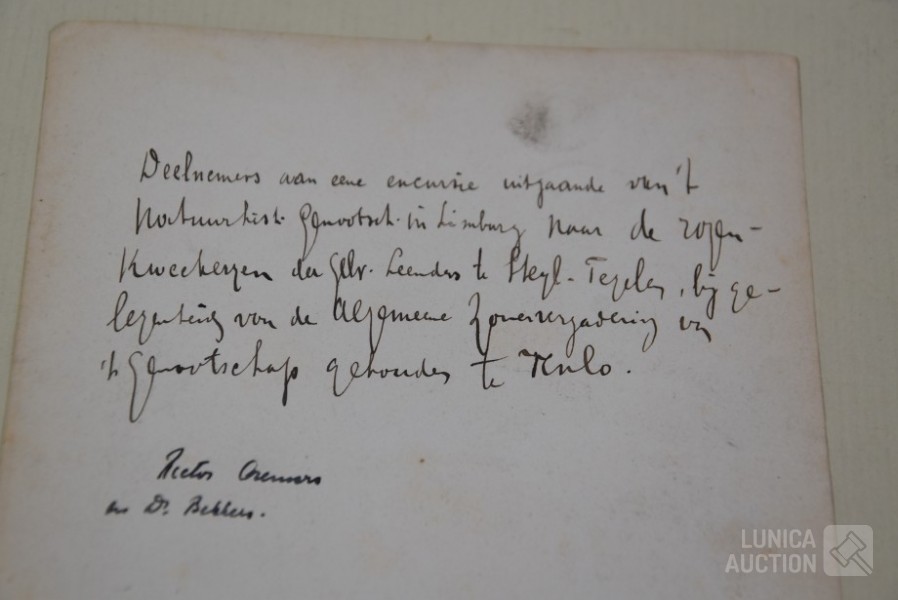 Deelnemers aan eene excursie uitgaande van 't
Natuurhist. Genootsch. in Limburg naar de rozen-
kweekerijen der Gebr. Leenders te Steyl-Tegelen, bij ge-
legenheid van de Algemeene Zomervergadering van
't Genootschap gehouden te Venlo.
Rector Cremers
en Dr. Beckers.
LUNICA
AUCTION